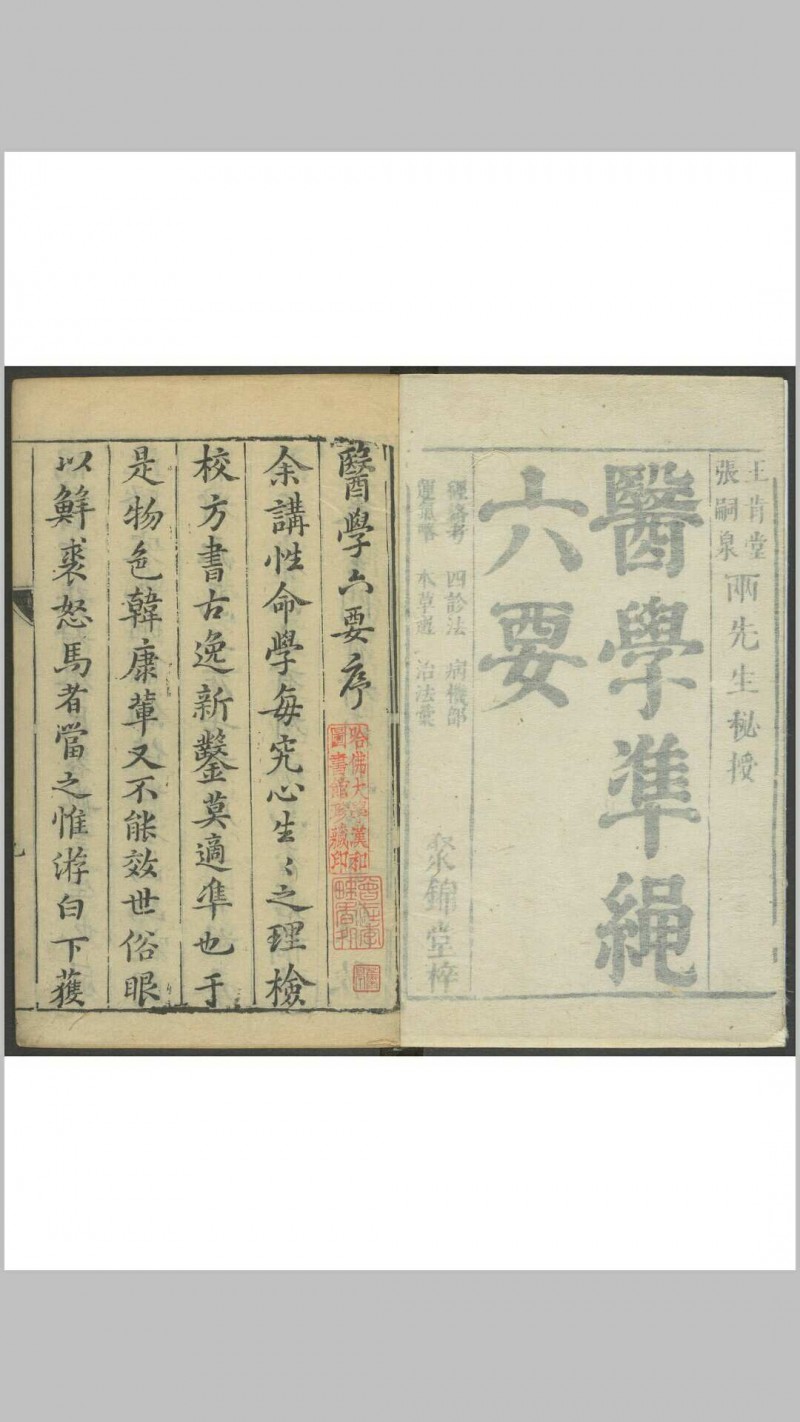 王肯堂
張嗣泉
兩先生秘授
醫學準繩
六要
經絡考 四診法 病機部
運氣畧 本草選 治法彙
聚錦堂梓
醫學六要序
哈佛大學漢和
圖書館珍藏印
余講性命學每究心生〻之理檢
校方書古逸新鑿莫適準也于
是物色韓康輩又不能效世俗眼
以鮮裘怒馬者當之惟游白下獲